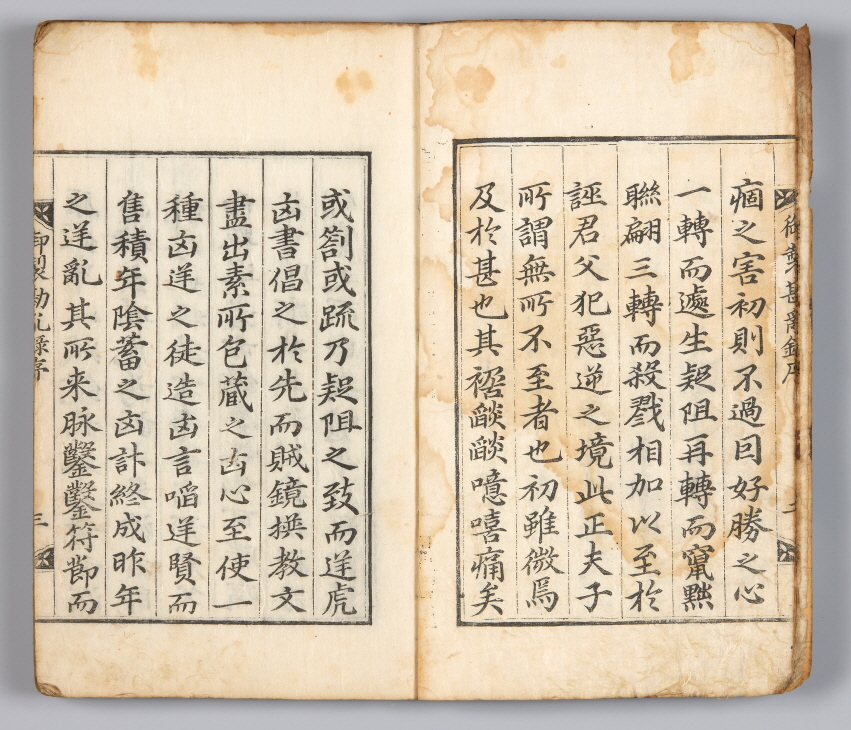 御製勘亂錄序
痼之害初則不過囙好勝之心
一轉而遽生疑阻再轉而竄黜
聯翩三轉而殺戮相加以至於
誣君父犯惡逆之境此正夫子
所謂無所不至者也初雖微焉
及於甚也其禍燄燄噫嘻痛矣
或劄或疏乃疑阻之致而逆虎
凶書倡之於先而賊鏡撰教文
盡出素所包藏之凶心至使一
種凶逆之徒造凶言啗逆賢而
售積年陰蓄之凶計終成昨年
之逆亂其所来脉鑿鑿符節而
御製勘亂錄序 三